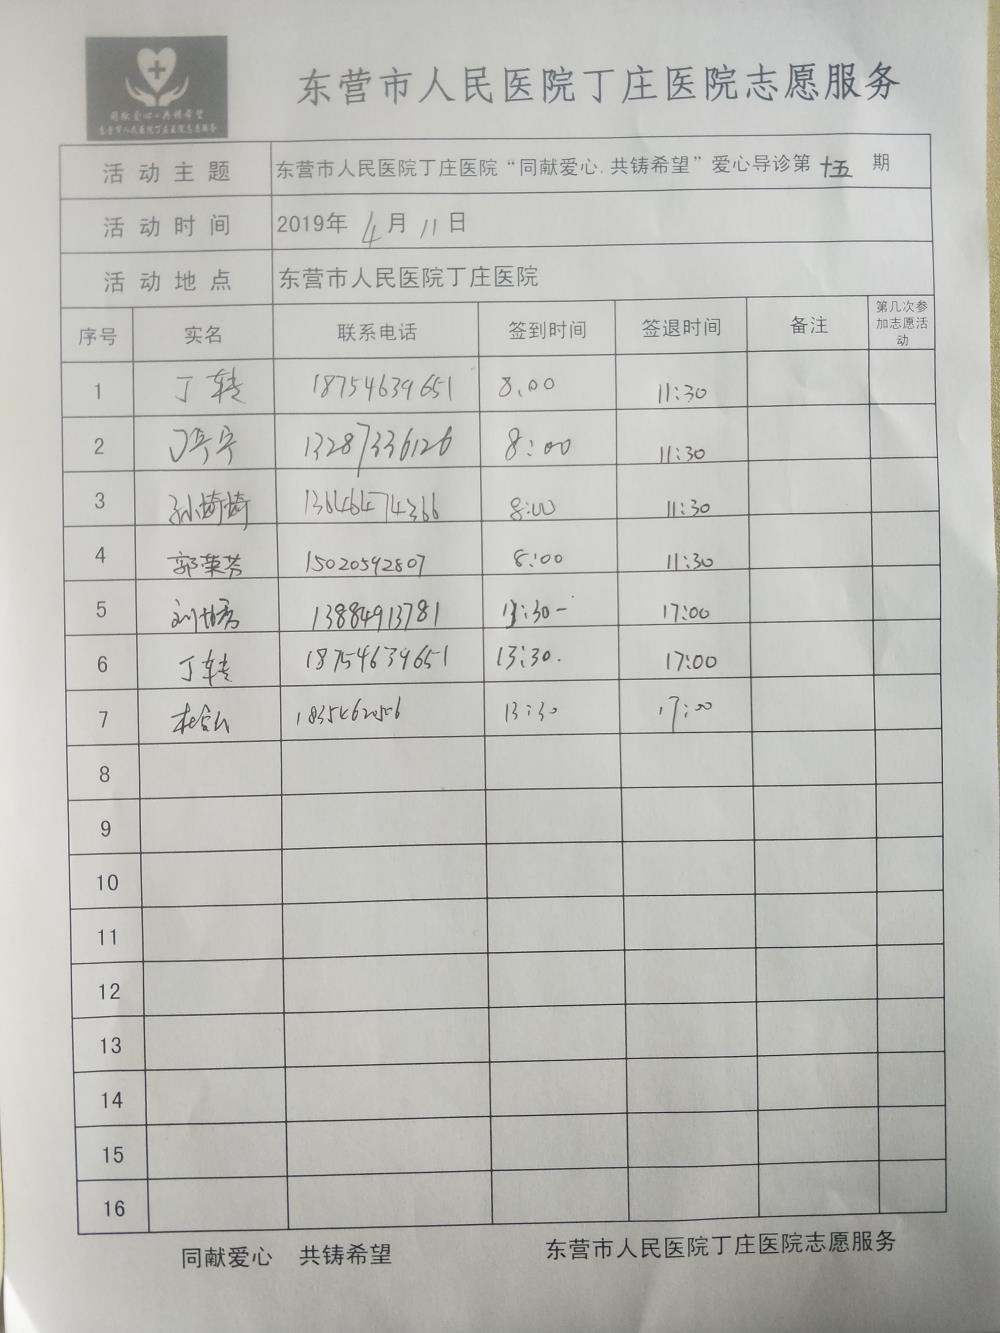 同献爱心·共铸希望
东营市人民医院丁庄医院志愿服务
东营市人民医院丁庄医院志愿服务
活动主题 东营市人民医院丁庄医院“同献爱心.共铸希望”爱心导诊第十五期
活动时间 2019年4月11日
活动地点 东营市人民医院丁庄医院
序号 实名 联系电话 签到时间 签退时间 备注 第几次参加志愿活动
1 丁转 18754639651 8:00 11:30
2 13287336126 8:00 11:30
3 孙崎崎 13646474366 8:00 11:30
4 郭荣芳 15020592807 8:00 11:30
5 13884913781 13:30- 17:00
6 丁转 18754639651 13:30. 17:00
7 18354620506 13:30 17:00
8
9
10
11
12
13
14
15
16
同献爱心 共铸希望 东营市人民医院丁庄医院志愿服务